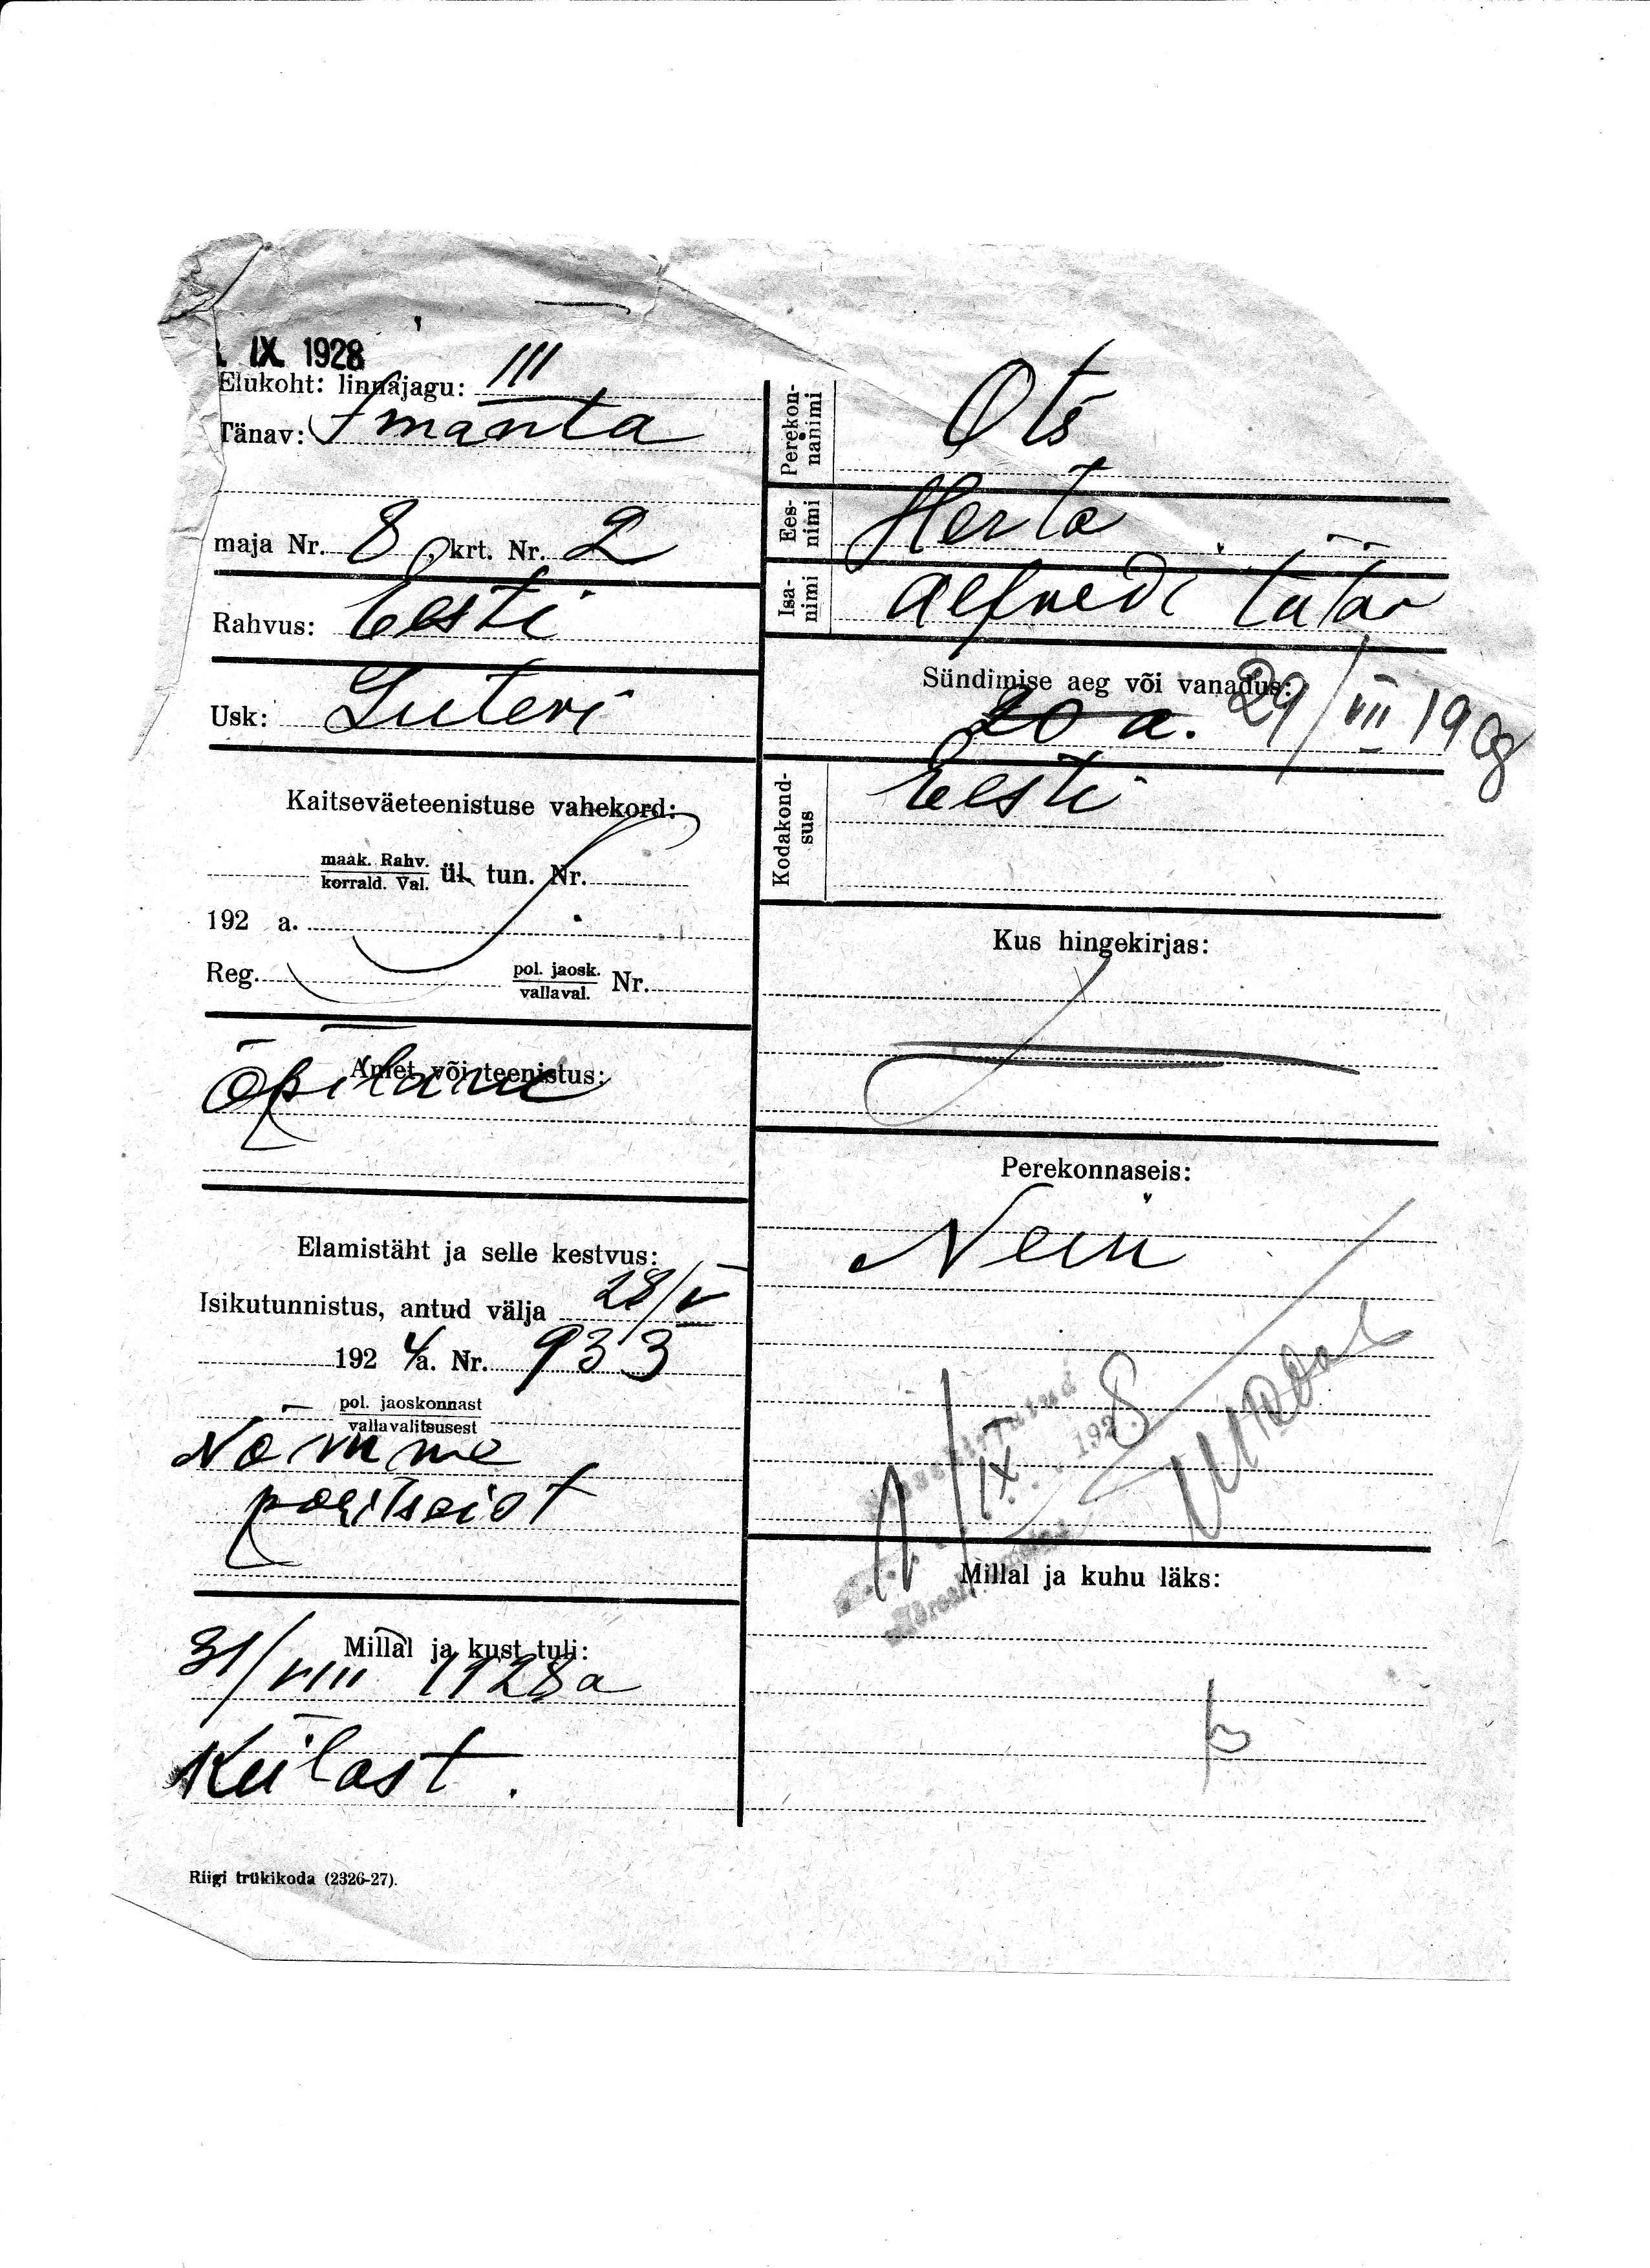 IX. 1928
Elukoht: linnajagu: III
Tänav: Imanta
maja Nr. 8, krt. Nr. 2
Rahvus: Eesti
Usk: Luteri
Kaitseväeteenistuse vahekord:
maak. Rahv.
korrald. Val. ül. tun. Nr.
192 a.
Reg. pol. jaosk.
vallaval. Nr.
Amet või teenistus:
Õpilane
Elamistäht ja selle kestvus:
Isikutunnistus, antud välja 28/V
192 4 a. Nr. 933
pol. jaoskonnast
vallavalitsusest
Nõmme
politseist
Millal ja kust tuli:
31/VIII 1928 a
Keilast.
Riigi trükikoda (2326-27).
Perekon-
nanimi
Ots
Ees-
nimi
Herta
Isa-
nimi
Alfredi tütar
Sündimise aeg või vanadus:
20 a. 29/VII 1908
Kodakond-
sus
Eesti
Kus hingekirjas:
Perekonnaseis:
Neiu
Sissekirjutud
1/IX 1928
Millal ja kuhu läks: